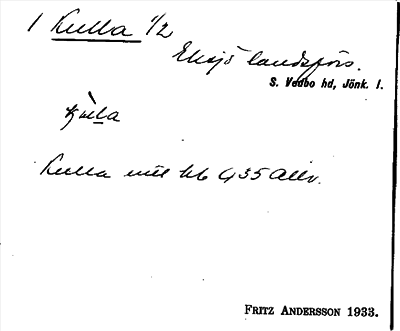 1 Kulla 1/2
Eksjö landsförs.
S. Vedbo hd, Jönk. l.
kùl̀a
Kulla mtl hb G35 Allv.
FRITZ ANDERSSON 1933.